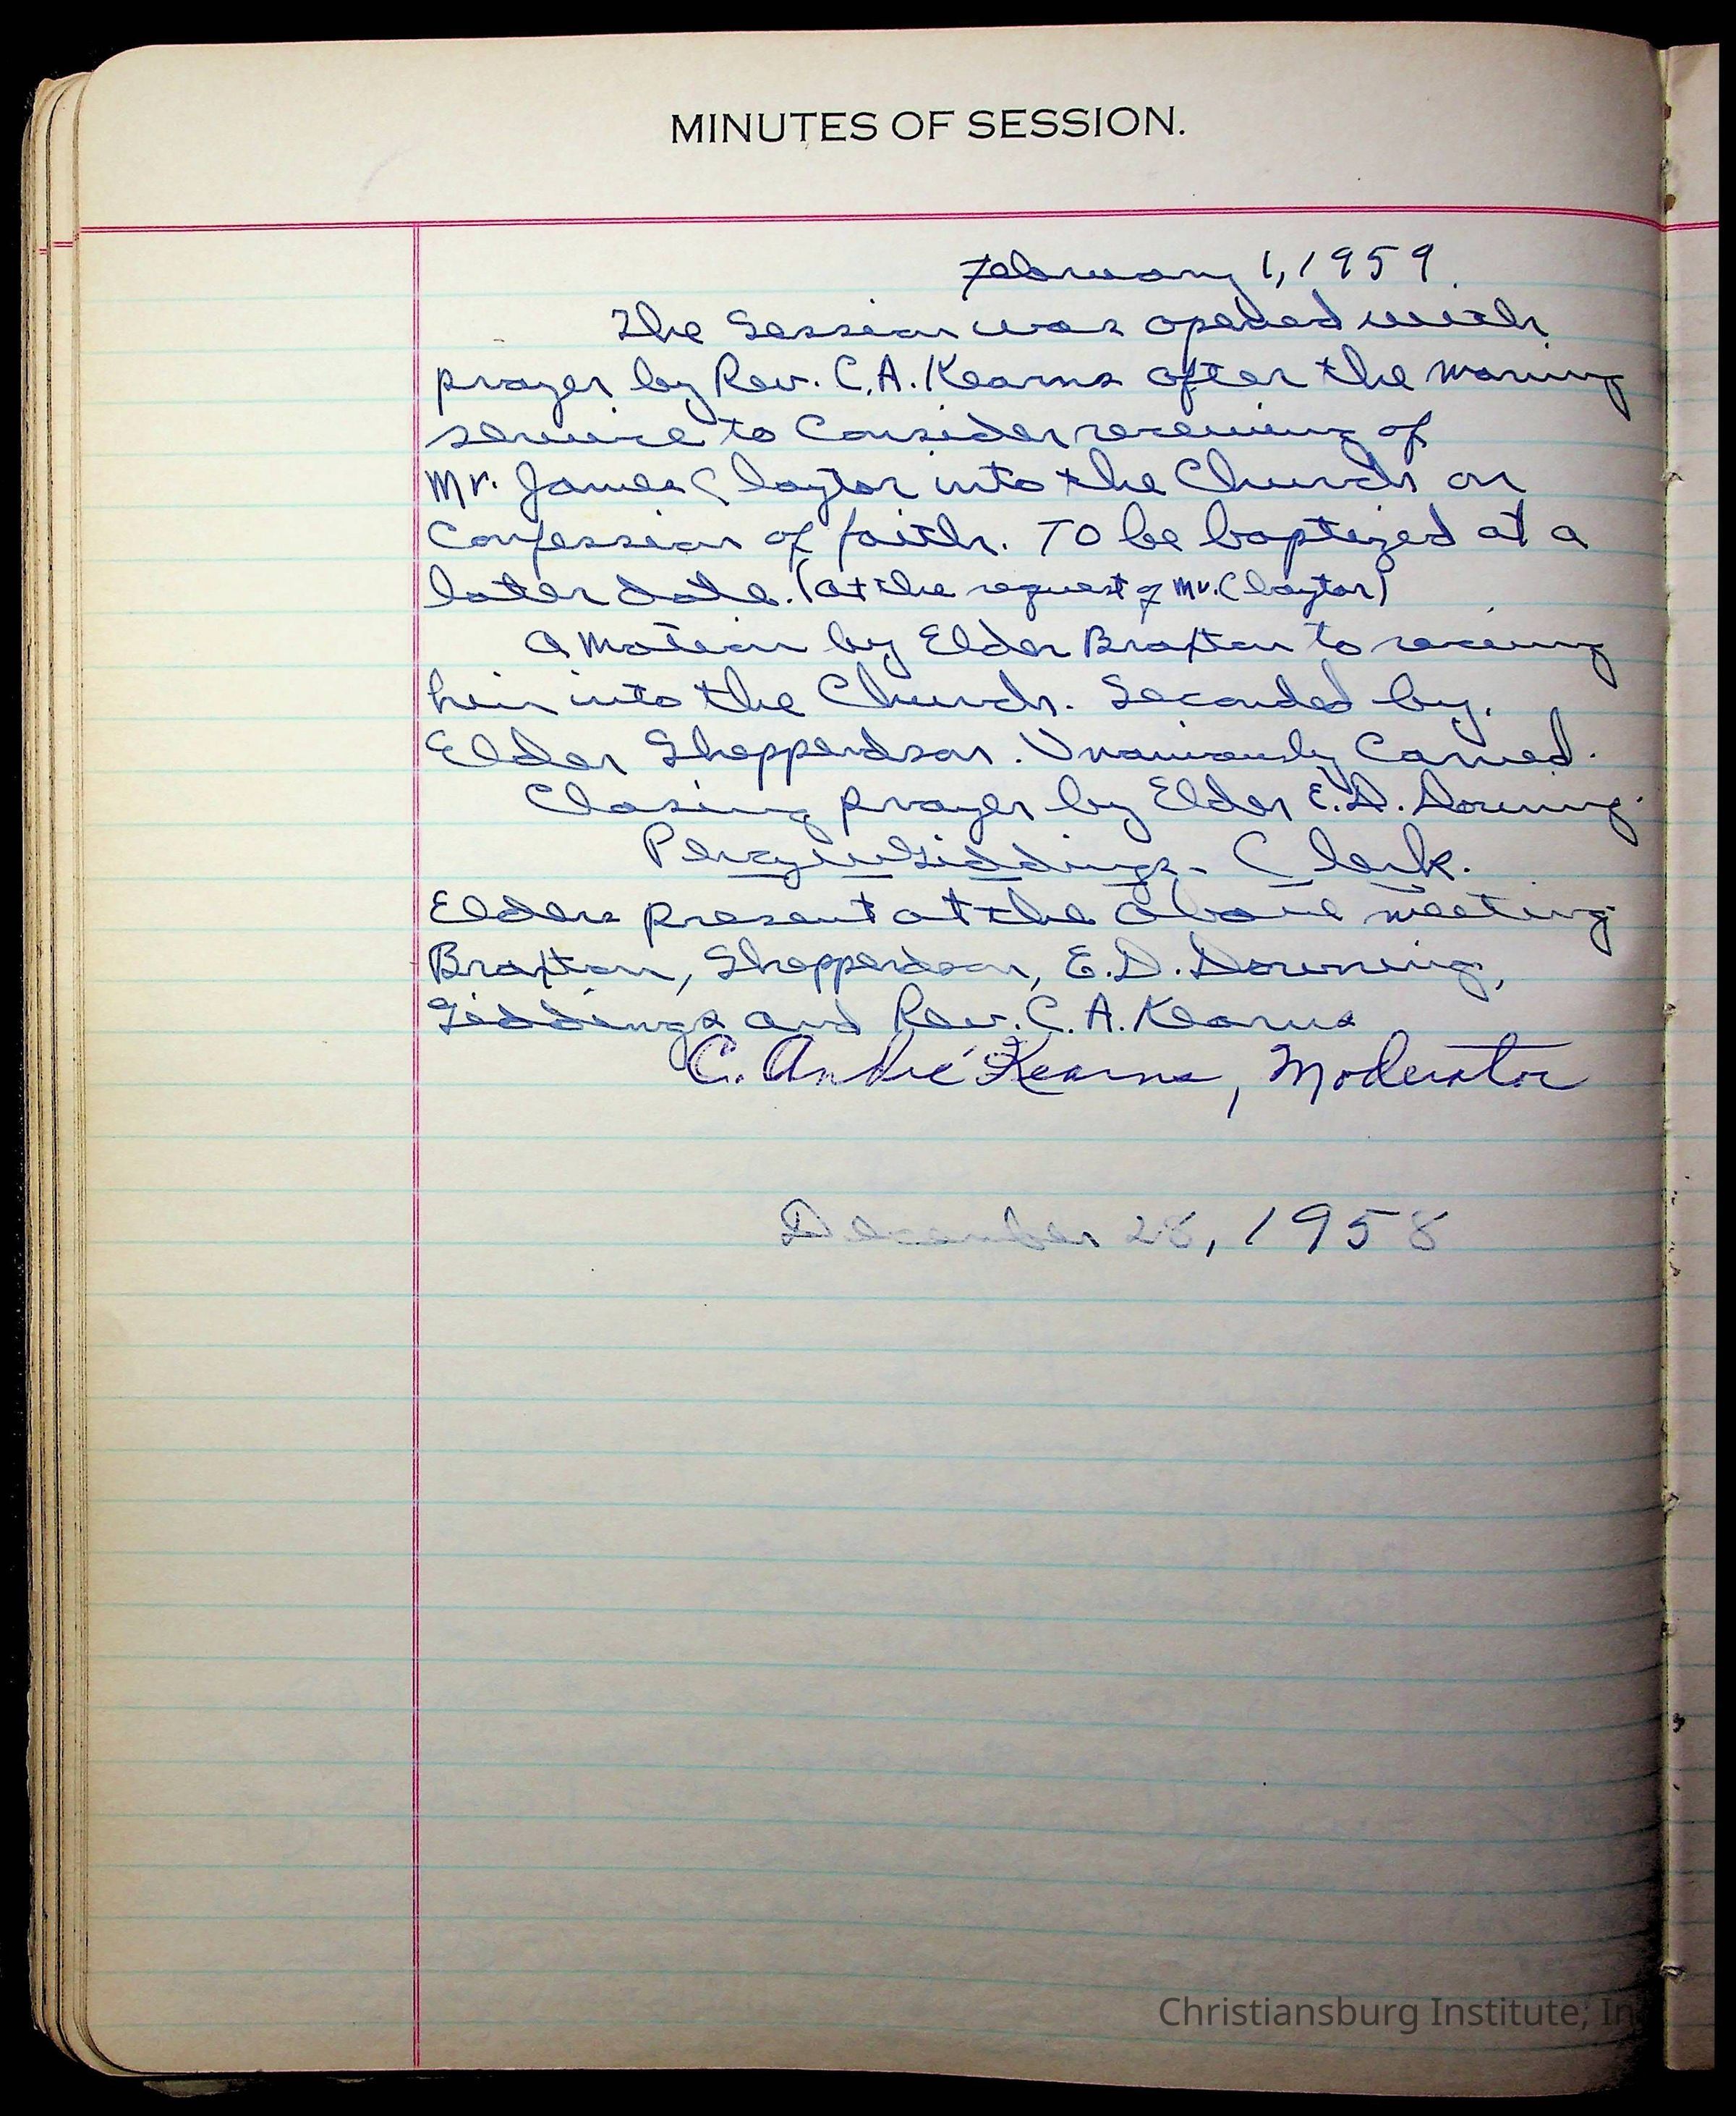 MINUTES OF SESSION.
February 1, 1959
The Session was opened with
prayer by Rev. C. A. Kearns after the morning
service to Consider receiving of
Mr. James Claytor into the Church on
Confession of faith. To be baptized at a
later date. (at the request of Mr. Claytor)
A Motion by Elder Braxton to receiving
him into the Church. Seconded by,
Elder Shepperdson. Unaniously Carried.
Closing prayer by Elder E. D. Downing.
Percy W Giddings - Clerk.
Elders present at the above meeting
Braxton, Shepperdson, E. D. Downing,
Giddings and Rev. C. A. Kearns
C. André Kearns, Moderator
December 28, 1958
Christiansburg Institute, In